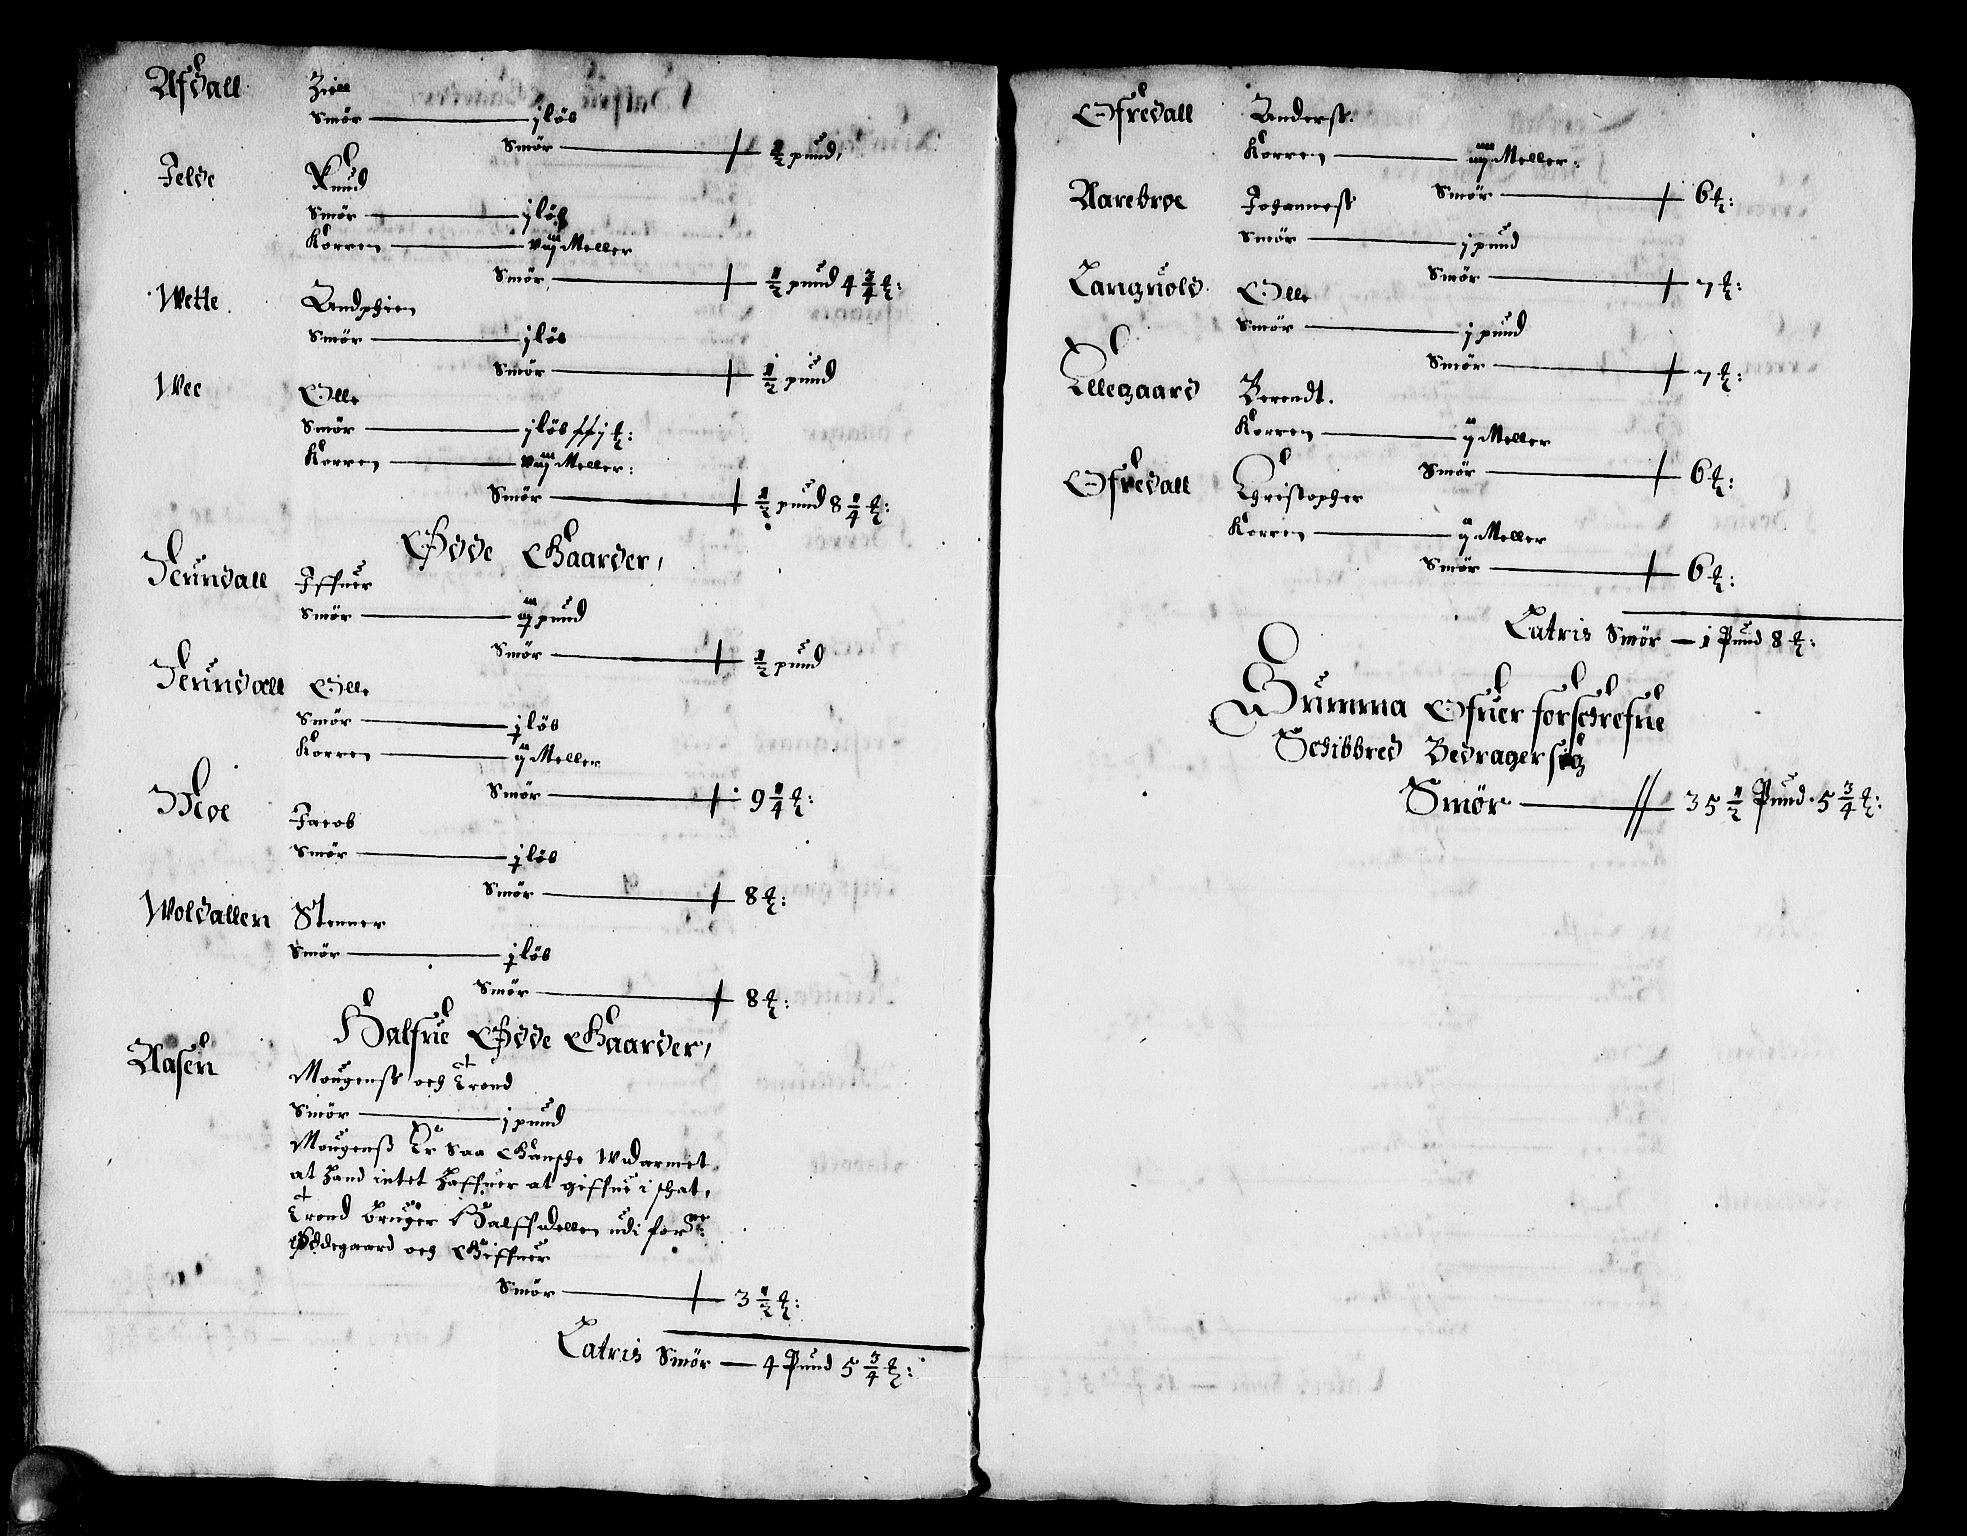 Afdall Ziell
Smör — j löb
Smör — ½ pund,
Felde Knud
Smör — j löb
Korren — viij Meller
Smör — ½ pund 4 ¾ ℔:
Wette Endphien
Smör — j löb
Smör — ½ pund
Wee Olle
Smör — j löb j ℔:
Korren — viij Meller:
Smör — ½ pund 8 ¼ ℔:
Øde Gaarder,
Jerindall Iffuer
Smör — pund
Smör — ½ pund
Jerindall Olle
Smör — j löb
Korren — ij Meller
Smör — 9 ¼ ℔:
Moe Jacob
Smör — j löb
Smör — 8 ℔:
Woldallen Stenner
Smör — j löb
Smör — 8 ℔:
Halfue Øde Gaarder,
Aasen Mougenss och Trond
Smör — j pund
Mougenß Er Saa Ganske Wdarmet
at hand intet haffuer at giffue i skat,
Trond bruger Halffdellen udi for:
Ødegaard och Giffuer
Smör — 3 ½ ℔:
Latris Smör — 4 Pund 5 ¾ ℔:
Ofredall Anderss.
Korren — iiij Meller:
Smör — 6 ℔:
Aarebroe Johanness
Smör — j pund
Smör — 7 ℔:
Languold Olle
Smör — j pund
Smör — 7 ℔:
Ellegaard Berendt.
Korren — ij Meller
Smör — 6 ℔:
Ofredall Christopher
Korren — ij Meller
Smör — 6 ℔:
Latris Smör — 1 Pund 8 ℔:
Summa Ofuer forschrefue
Schibbred Bedrager sig
Smör — 35 ½ Pund 5 ¾ ℔: